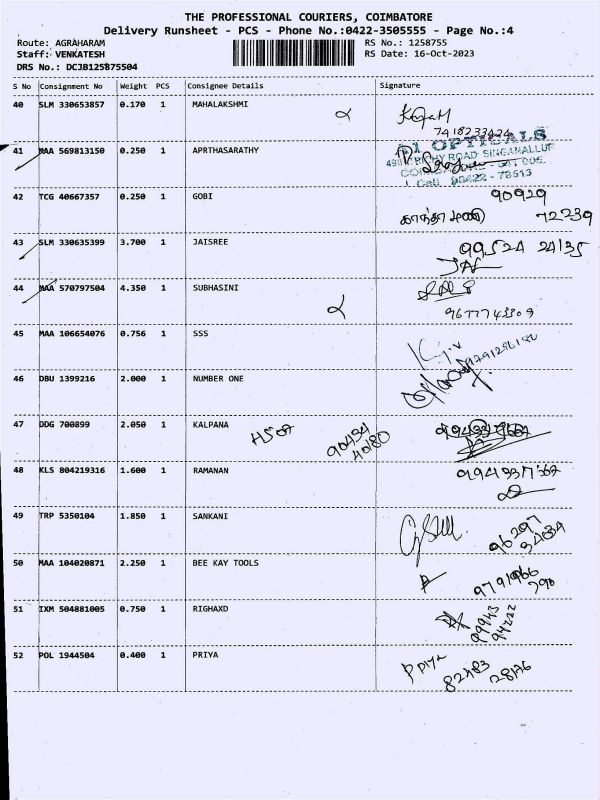 THE PROFESSIONAL COURIERS, COIMBATORE
Delivery Runsheet - PCS - Phone No.:0422-3505555 - Page No.:4
Route: AGRAHARAM
RS No.: 1258755
Staff: VENKATESH
RS Date: 16-Oct-2023
DRS No.: DCJB125875504
S No Consignment No Weight PCS Consignee Details Signature
40 SLM 330653857 0.170 1 MAHALAKSHMI
7418233424
41 MAA 569813150 0.250 1 APRTHASARATHY
OPTICALS
ROAD SINGANALLUR
42 TCG 40667357 0.250 1 GOBI 90929
72239
43 SLM 330635399 3.700 1 JAISREE 99524 24135
44 MAA 570797504 4.350 1 SUBHASINI
9677743309
45 MAA 106654076 0.756 1 SSS
46 DBU 1399216 2.000 1 NUMBER ONE
47 DDG 700899 2.050 1 KALPANA
90434
40180
48 KLS 804219316 1.600 1 RAMANAN
49 TRP 5350104 1.850 1 SANKANI
96297
50 MAA 104020871 2.250 1 BEE KAY TOOLS
9791966
790
51 IXM 504881005 0.750 1 RIGHAXD
99943
94222
52 POL 1944504 0.400 1 PRIYA
Priya
82483
28176